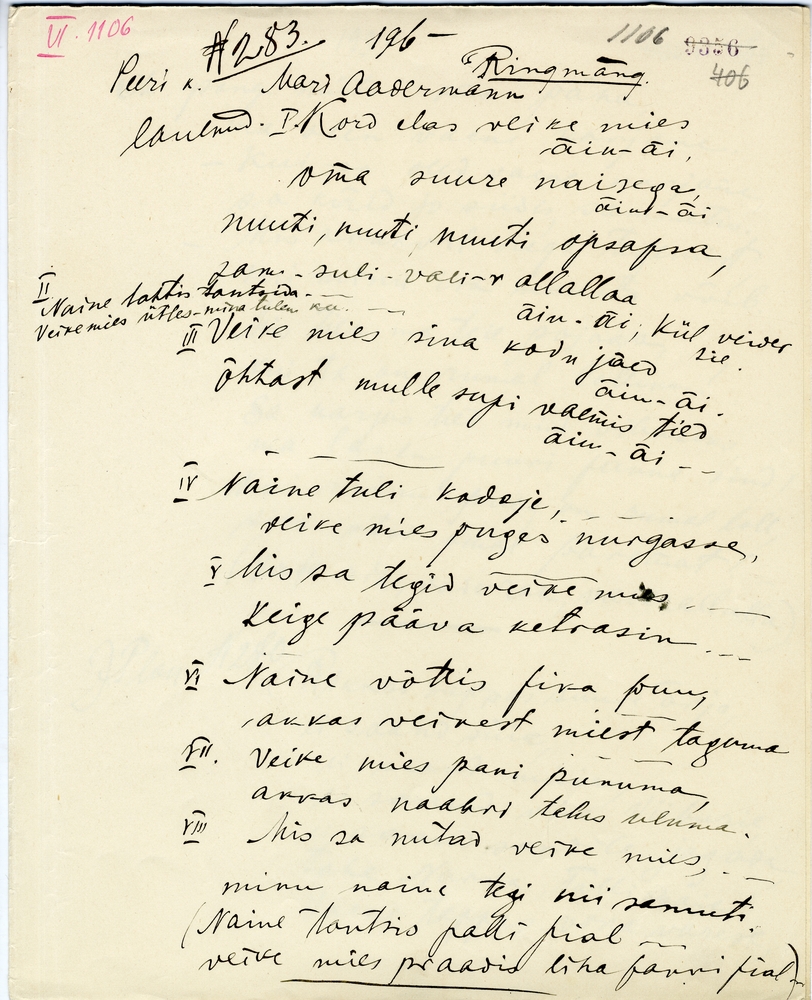 VI. 1106
#283. 196- 1106 9356
406
Peeri k. Mari Aadermann Ringmäng.
laulnud. I. Kord elas veike mies
äiu-äi,
oma suure naisega,
äiu-äi
nuuti, nuuti, nuuti opsapsa,
suli-vali-r allallaa
äiu-äi, kül veider
sie.
II Naine tahtis tantsida.
Veike mies ütles-mina tulen ka.
III Veike mies sina kodu jäed
äiu-äi.
Õhtast mulle supi valmis tied
äiu-äi --
IV Naine tuli kodoje,
veike mies puges nurgasse,
V Mis sa tegid veike mies
Keige pääva ketrasin
VI Naine võttis pira puu,
akkas veikest miest taguma
VII. Veike mies pani punuma,
akkas naabri uluma.
VIII Mis sa nutad veike mies,
minu naine tegi nii samuti.
(Naine tantsis palli pial
veike mies praadis liha panni pial)